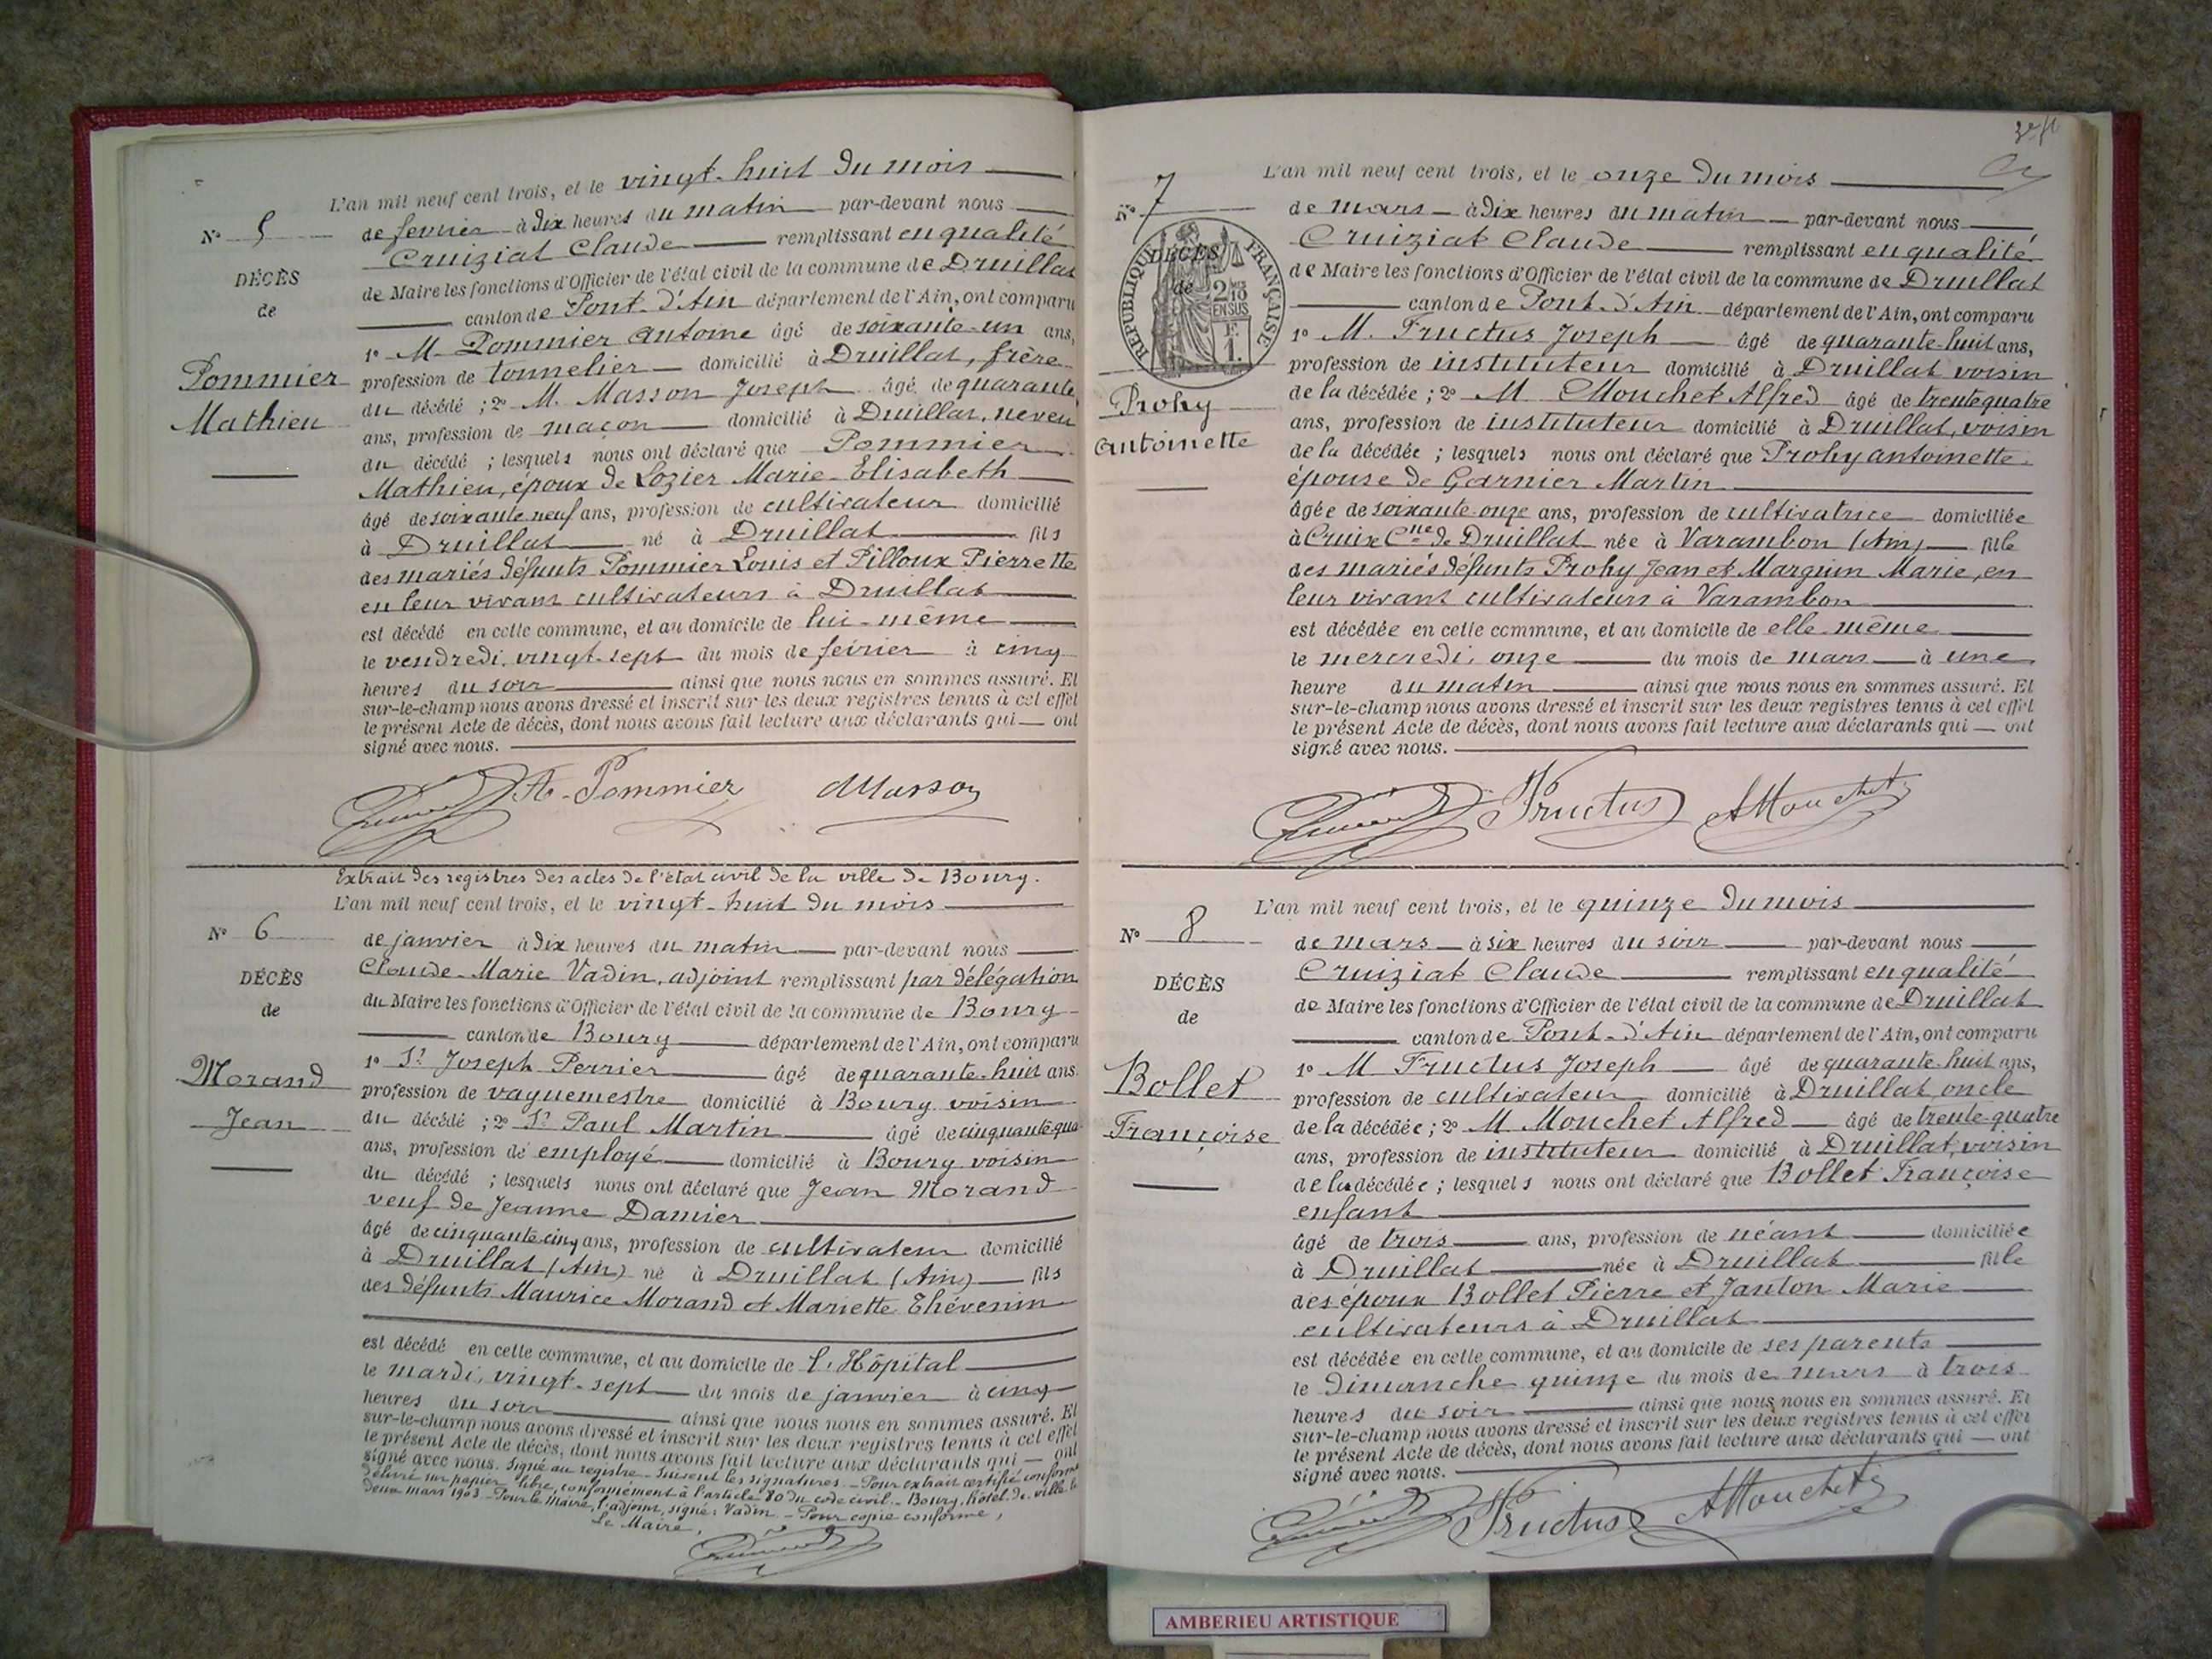 L'an mil neuf cent trois, et le vingt-huit du mois
N° 5
de février à dix heures du matin par-devant nous
Cruiziat Claude remplissant en qualité
DÉCÈS
de Maire les fonctions d'Officier de l'état civil de la commune de Druillat
de
canton de Pont-d'Ain département de l'Ain, ont comparu
1° M. Pommier Antoine âgé de soixante-un ans,
Pommier
profession de tonnelier domicilié à Druillat, frère
Mathieu
du décédé ; 2° M. Masson Joseph âgé de quarante
ans, profession de maçon domicilié à Druillat, neveu
du décédé ; lesquels nous ont déclaré que Pommier
Mathieu, époux de Lozier Marie-Elisabeth
âgé de soixante neuf ans, profession de cultivateur domicilié
à Druillat né à Druillat fils
des mariés défunts Pommier Louis et Pilloux Pierrette
en leur vivant cultivateurs à Druillat
est décédé en cette commune, et au domicile de lui-même
le vendredi, vingt-sept du mois de février à cinq
heures du soir ainsi que nous nous en sommes assuré. Et
sur-le-champ nous avons dressé et inscrit sur les deux registres tenus à cet effet
le présent Acte de décès, dont nous avons fait lecture aux déclarants qui — ont
signé avec nous.
A. Pommier Masson
Extrait des registres des actes de l'état civil de la ville de Bourg.
L'an mil neuf cent trois, et le vingt-huit du mois
N° 6
de janvier à dix heures du matin par-devant nous
Claude-Marie Vadin, adjoint remplissant par délégation
DÉCÈS
du Maire les fonctions d'Officier de l'état civil de la commune de Bourg
de
canton de Bourg département de l'Ain, ont comparu
1° Sr Joseph Perrier âgé de quarante-huit ans.
Morand
profession de vaguemestre domicilié à Bourg voisin
Jean
du décédé ; 2° Sr Paul Martin âgé de cinquante qua
ans, profession de employé domicilié à Bourg voisin
du décédé ; lesquels nous ont déclaré que Jean Morand
veuf de Jeanne Damier
âgé de cinquante cinq ans, profession de cultivateur domicilié
à Druillat (Ain) né à Druillat (Ain) fils
des défunts Maurice Morand et Mariette Thévenin
est décédé en cette commune, et au domicile de l'Hôpital
le mardi, vingt-sept du mois de janvier à cinq
heures du soir ainsi que nous nous en sommes assuré. Et
sur-le-champ nous avons dressé et inscrit sur les deux registres tenus à cet effet
le présent Acte de décès, dont nous avons fait lecture aux déclarants qui — ont
signé avec nous. Signé au registre. Suivent les signatures. – Pour extrait certifié conforme
délivré sur papier libre, conformément à l'article 80 du code civil. – Bourg, hôtel de ville le
deux mars 1903 – Pour le Maire, l'adjoint, signé : Vadin – Pour copie conforme,
Le Maire,
L'an mil neuf cent trois, et le onze du mois
N° 7
de mars – à dix heures du matin – par-devant nous
Cruiziat Claude remplissant en qualité
DÉCÈS
de
RÉPUBLIQUE FRANÇAISE
2/10 EN SUS
F. 1.
de Maire les fonctions d'Officier de l'état civil de la commune de Druillat
canton de Pont-d'Ain département de l'Ain, ont comparu
1° M. Fructus Joseph âgé de quarante-huit ans,
profession de instituteur domicilié à Druillat voisin
Prohy
de la décédée ; 2° M. Mouchet Alfred âgé de trente quatre
Antoinette
ans, profession de instituteur domicilié à Druillat, voisin
de la décédée ; lesquels nous ont déclaré que Prohy Antoinette
épouse de Garnier Martin
âgée de soixante-onze ans, profession de cultivatrice domiciliée
à Cruix Cne de Druillat née à Varambon (Ain) fille
des mariés défunts Prohy Jean et Marguin Marie, en
leur vivant cultivateurs à Varambon
est décédée en cette commune, et au domicile de elle-même
le mercredi, onze du mois de mars à une
heure du matin ainsi que nous nous en sommes assuré. Et
sur-le-champ nous avons dressé et inscrit sur les deux registres tenus à cet effet
le présent Acte de décès, dont nous avons fait lecture aux déclarants qui — ont
signé avec nous.
Fructus A Mouchet
L'an mil neuf cent trois, et le quinze du mois
N° 8
de mars – à six heures du soir par-devant nous
Cruiziat Claude remplissant en qualité
DÉCÈS
de Maire les fonctions d'Officier de l'état civil de la commune de Druillat
de
canton de Pont-d'Ain département de l'Ain, ont comparu
1° M Fructus Joseph âgé de quarante-huit ans,
Bollet
profession de cultivateur domicilié à Druillat, oncle
Françoise
de la décédée ; 2° M. Mouchet Alfred âgé de trente-quatre
ans, profession de instituteur domicilié à Druillat, voisin
de la décédée ; lesquels nous ont déclaré que Bollet Françoise
enfant
âgé de trois ans, profession de néant domiciliée
à Druillat née à Druillat fille
des époux Bollet Pierre et Janton Marie
cultivateurs à Druillat
est décédée en cette commune, et au domicile de ses parents
le Dimanche quinze du mois de mars à trois
heures du soir ainsi que nous nous en sommes assuré. Et
sur-le-champ nous avons dressé et inscrit sur les deux registres tenus à cet effet
le présent Acte de décès, dont nous avons fait lecture aux déclarants qui — ont
signé avec nous.
Fructus A Mouchet
AMBERIEU ARTISTIQUE